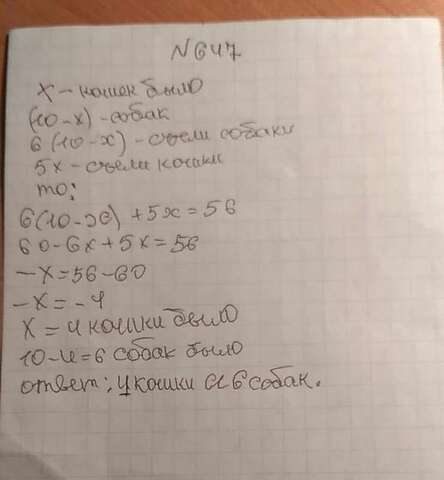 N647
x - кошек было
(10-x) - собак
6(10-x) - съели собаки
5x - съели кошки
то:
6(10-x) + 5x = 56
60-6x+5x=56
-x=56-60
-x=-4
x = 4 кошки было
10-4=6 собак было
ответ: 4 кошки и 6 собак.